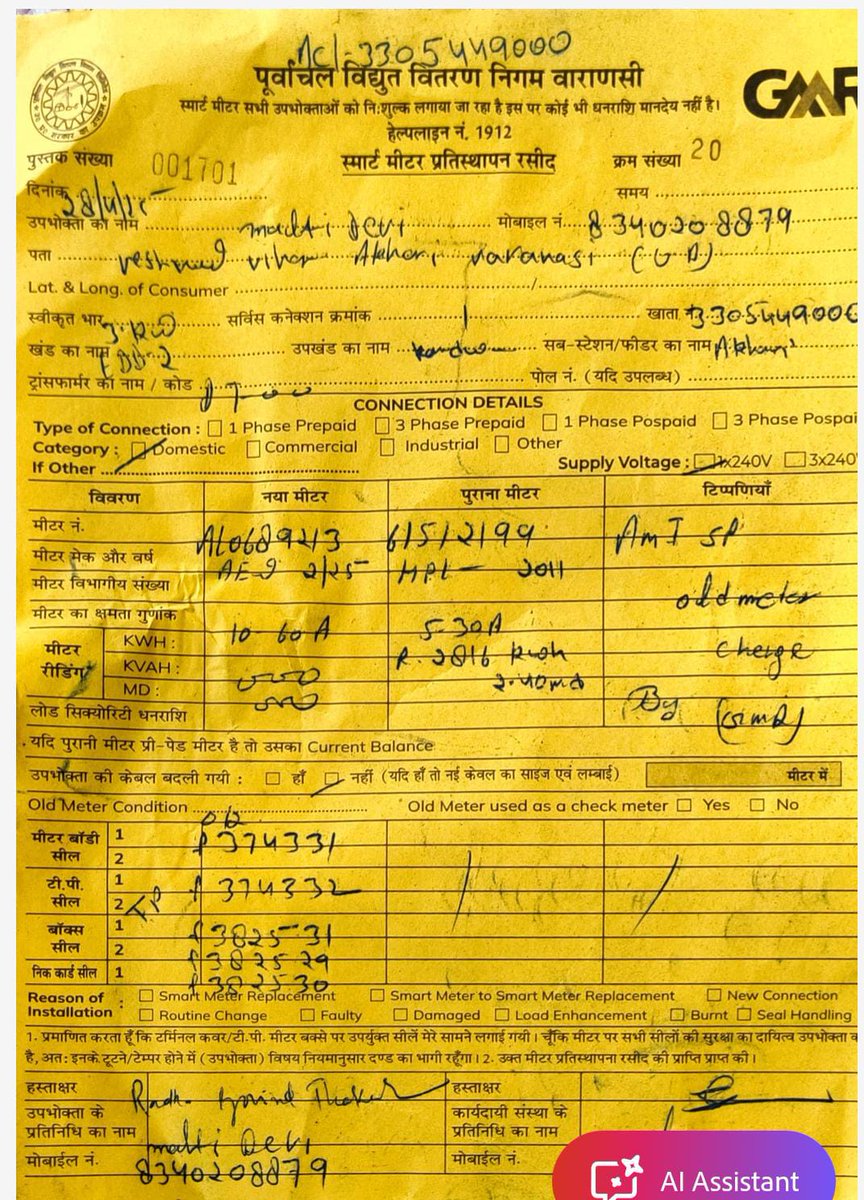 A/c - 3305449000
पूर्वांचल विद्युत वितरण निगम वाराणसी
GMR
स्मार्ट मीटर सभी उपभोक्ताओं को नि:शुल्क लगाया जा रहा है इस पर कोई भी धनराशि मानदेय नहीं है।
हेल्पलाइन नं. 1912
पुस्तक संख्या 001701 स्मार्ट मीटर प्रतिस्थापन रसीद क्रम संख्या 20
दिनांक 28/4/25 समय
उपभोक्ता का नाम Devi मोबाइल नं. 8340208879
पता Akhari Varanasi (U P)
Lat. & Long. of Consumer
स्वीकृत भार 3 KW सर्विस कनेक्शन क्रमांक खाता 3305449000
खंड का नाम EDD-2 उपखंड का नाम सब-स्टेशन/फीडर का नाम Akhari
ट्रांसफार्मर का नाम / कोड पोल नं. (यदि उपलब्ध)
CONNECTION DETAILS
Type of Connection : 1 Phase Prepaid 3 Phase Prepaid 1 Phase Pospaid 3 Phase Pospai
Category : Domestic Commercial Industrial Other
If Other Supply Voltage : 1x240V 3x240
विवरण नया मीटर पुराना मीटर टिप्पणियाँ
मीटर नं. AL0689213 61512199 AMI SP
मीटर मेक और वर्ष 2/25 HPL - 2011
मीटर विभागीय संख्या old meter
मीटर का क्षमता गुणांक 10-60A 5-30A
मीटर रीडिंग KWH : R. 2816 kwh
KVAH : 000 2.40 md
MD : 000 By
लोड सिक्योरिटी धनराशि
यदि पुरानी मीटर प्री-पेड मीटर है तो उसका Current Balance
उपभोक्ता की केबल बदली गयी : हाँ नहीं (यदि हाँ तो नई केवल का साइज एवं लम्बाई) मीटर में
Old Meter Condition ok Old Meter used as a check meter Yes No
मीटर बॉडी सील 1 374331
2
टी.पी. सील 1 374332
2 TP
बॉक्स सील 1 382531
2 382529
निक कार्ड सील 1 382530
Reason of Installation : Smart Meter Replacement Smart Meter to Smart Meter Replacement New Connection
Routine Change Faulty Damaged Load Enhancement Burnt Seal Handling
1. प्रमाणित करता हूँ कि टर्मिनल कवर/टी.पी. मीटर बक्से पर उपर्युक्त सीलें मेरे सामने लगाई गयी। चूँकि मीटर पर सभी सीलों की सुरक्षा का दायित्व उपभोक्ता
है, अत: इनके टूटने/टेम्पर होने में (उपभोक्ता) विषय नियमानुसार दण्ड का भागी रहूँगा। 2. उक्त मीटर प्रतिस्थापना रसीद की प्राप्ति प्राप्त की।
हस्ताक्षर Govind Thakur हस्ताक्षर
उपभोक्ता के प्रतिनिधि का नाम Devi कार्यदायी संस्था के प्रतिनिधि का नाम
मोबाईल नं. 8340208879 मोबाईल नं.
AI Assistant